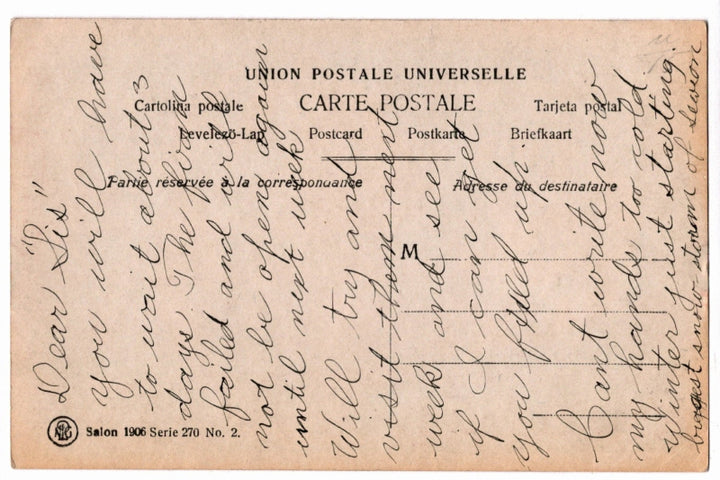 UNION POSTALE UNIVERSELLE
Cartolina postale CARTE POSTALE Tarjeta postal
Levelezö-Lap Postcard Postkarte Briefkaart
Partie réservée à la correspondance Adresse du destinataire
M
Salon 1906 Serie 270 No. 2.
Dear "Sis"
you will have
to wait about 3
days. The firm
failed and will
not be open again
until next week
Will try and
visit them next
week and see
if I can get
you fixed up
Cant write now
my hands too cold
Winter just starting.
biggest snow storm of season